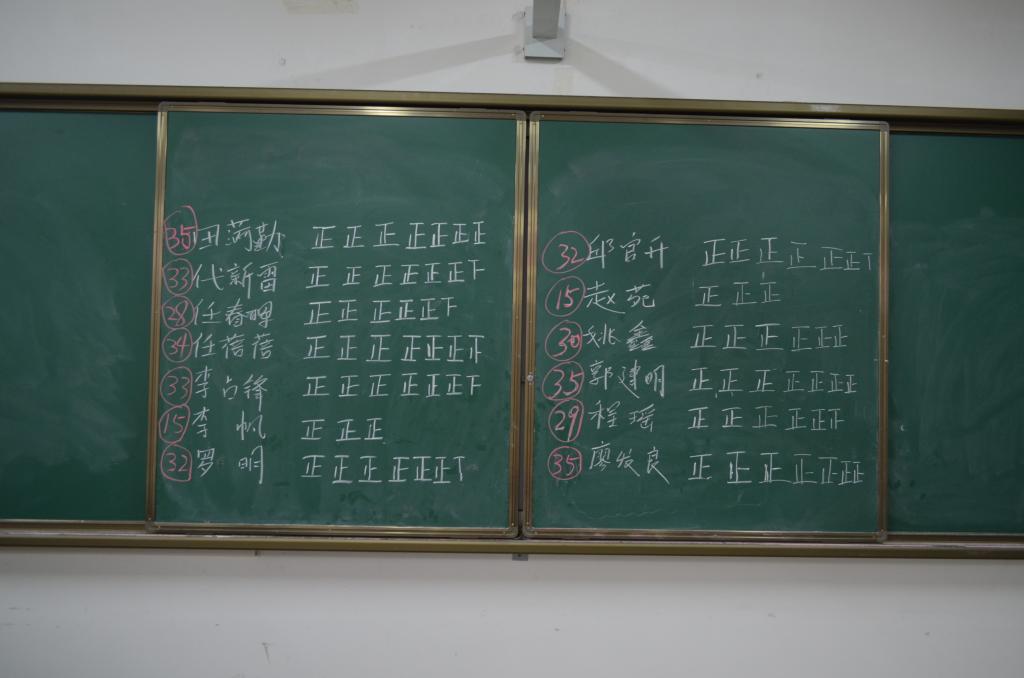 35 田茼勤 正正正正正正正
33 代新雷 正正正正正正下
28 任春晖 正正正正正下
34 任蓓蓓 正正正正正正
33 李占锋 正正正正正正下
15 李帆 正正正
32 罗明 正正正正正正丅
32 邱官升 正正正正正正丅
15 赵苑 正正正
30 姚鑫 正正正正正正
35 郭建明 正正正正正正正
29 程瑶 正正正正正
35 廖发良 正正正正正正正